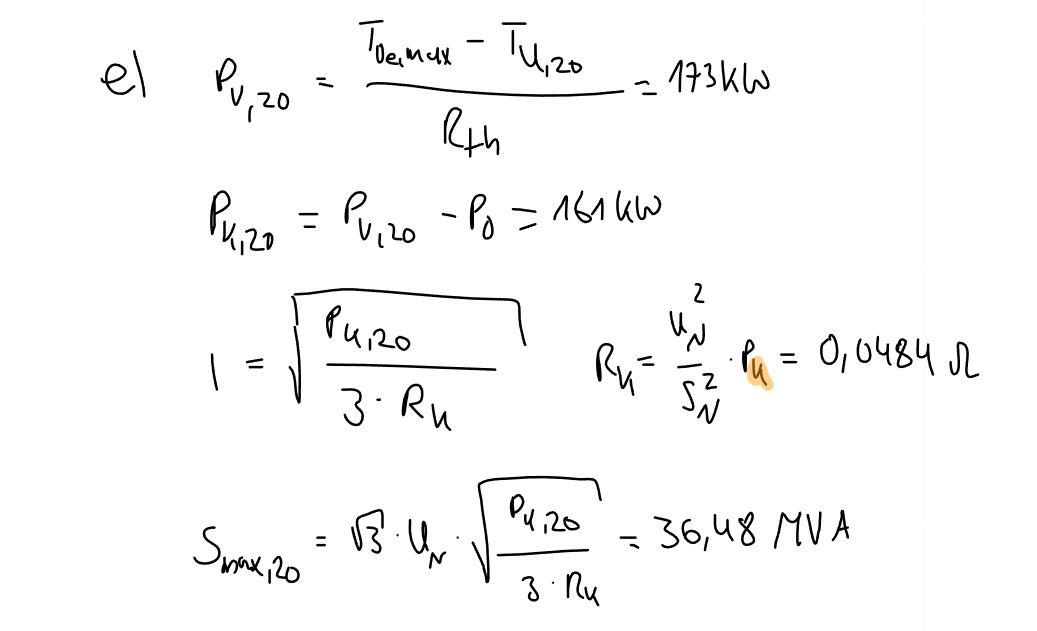 e) P_V,20 = (T_Oe,max - T_U,20) / R_th = 173 kW
P_K,20 = P_V,20 - P_0 = 161 kW
I = √(P_K,20 / (3 · R_K)) R_K = U_N² / S_N² · P_K = 0,0484 Ω
S_max,20 = √3 · U_N · √(P_K,20 / (3 · R_K)) = 36,48 MVA